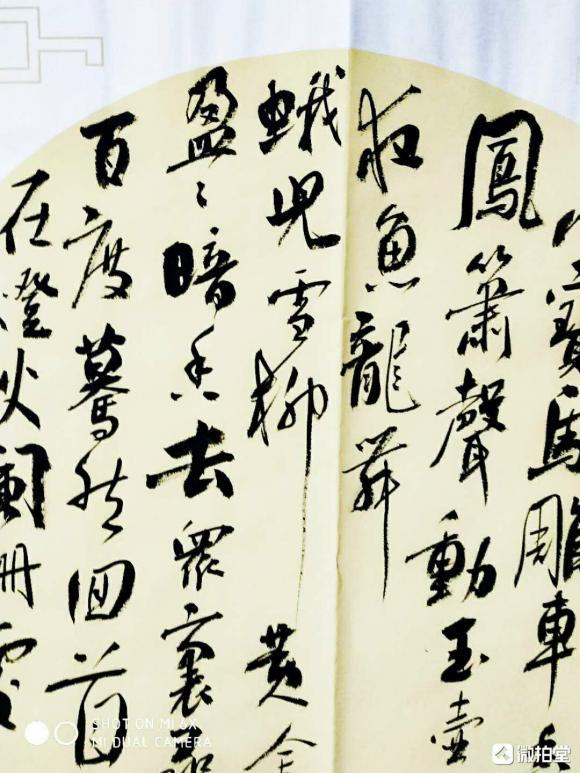 寶馬雕車香
鳳簫聲動玉壺
夜魚龍舞
蛾兒雪柳黃金
盈々暗香去眾裏
百度驀然回首
在燈火闌珊處
SHOT ON MI 6X
MI DUAL CAMERA
微拍堂